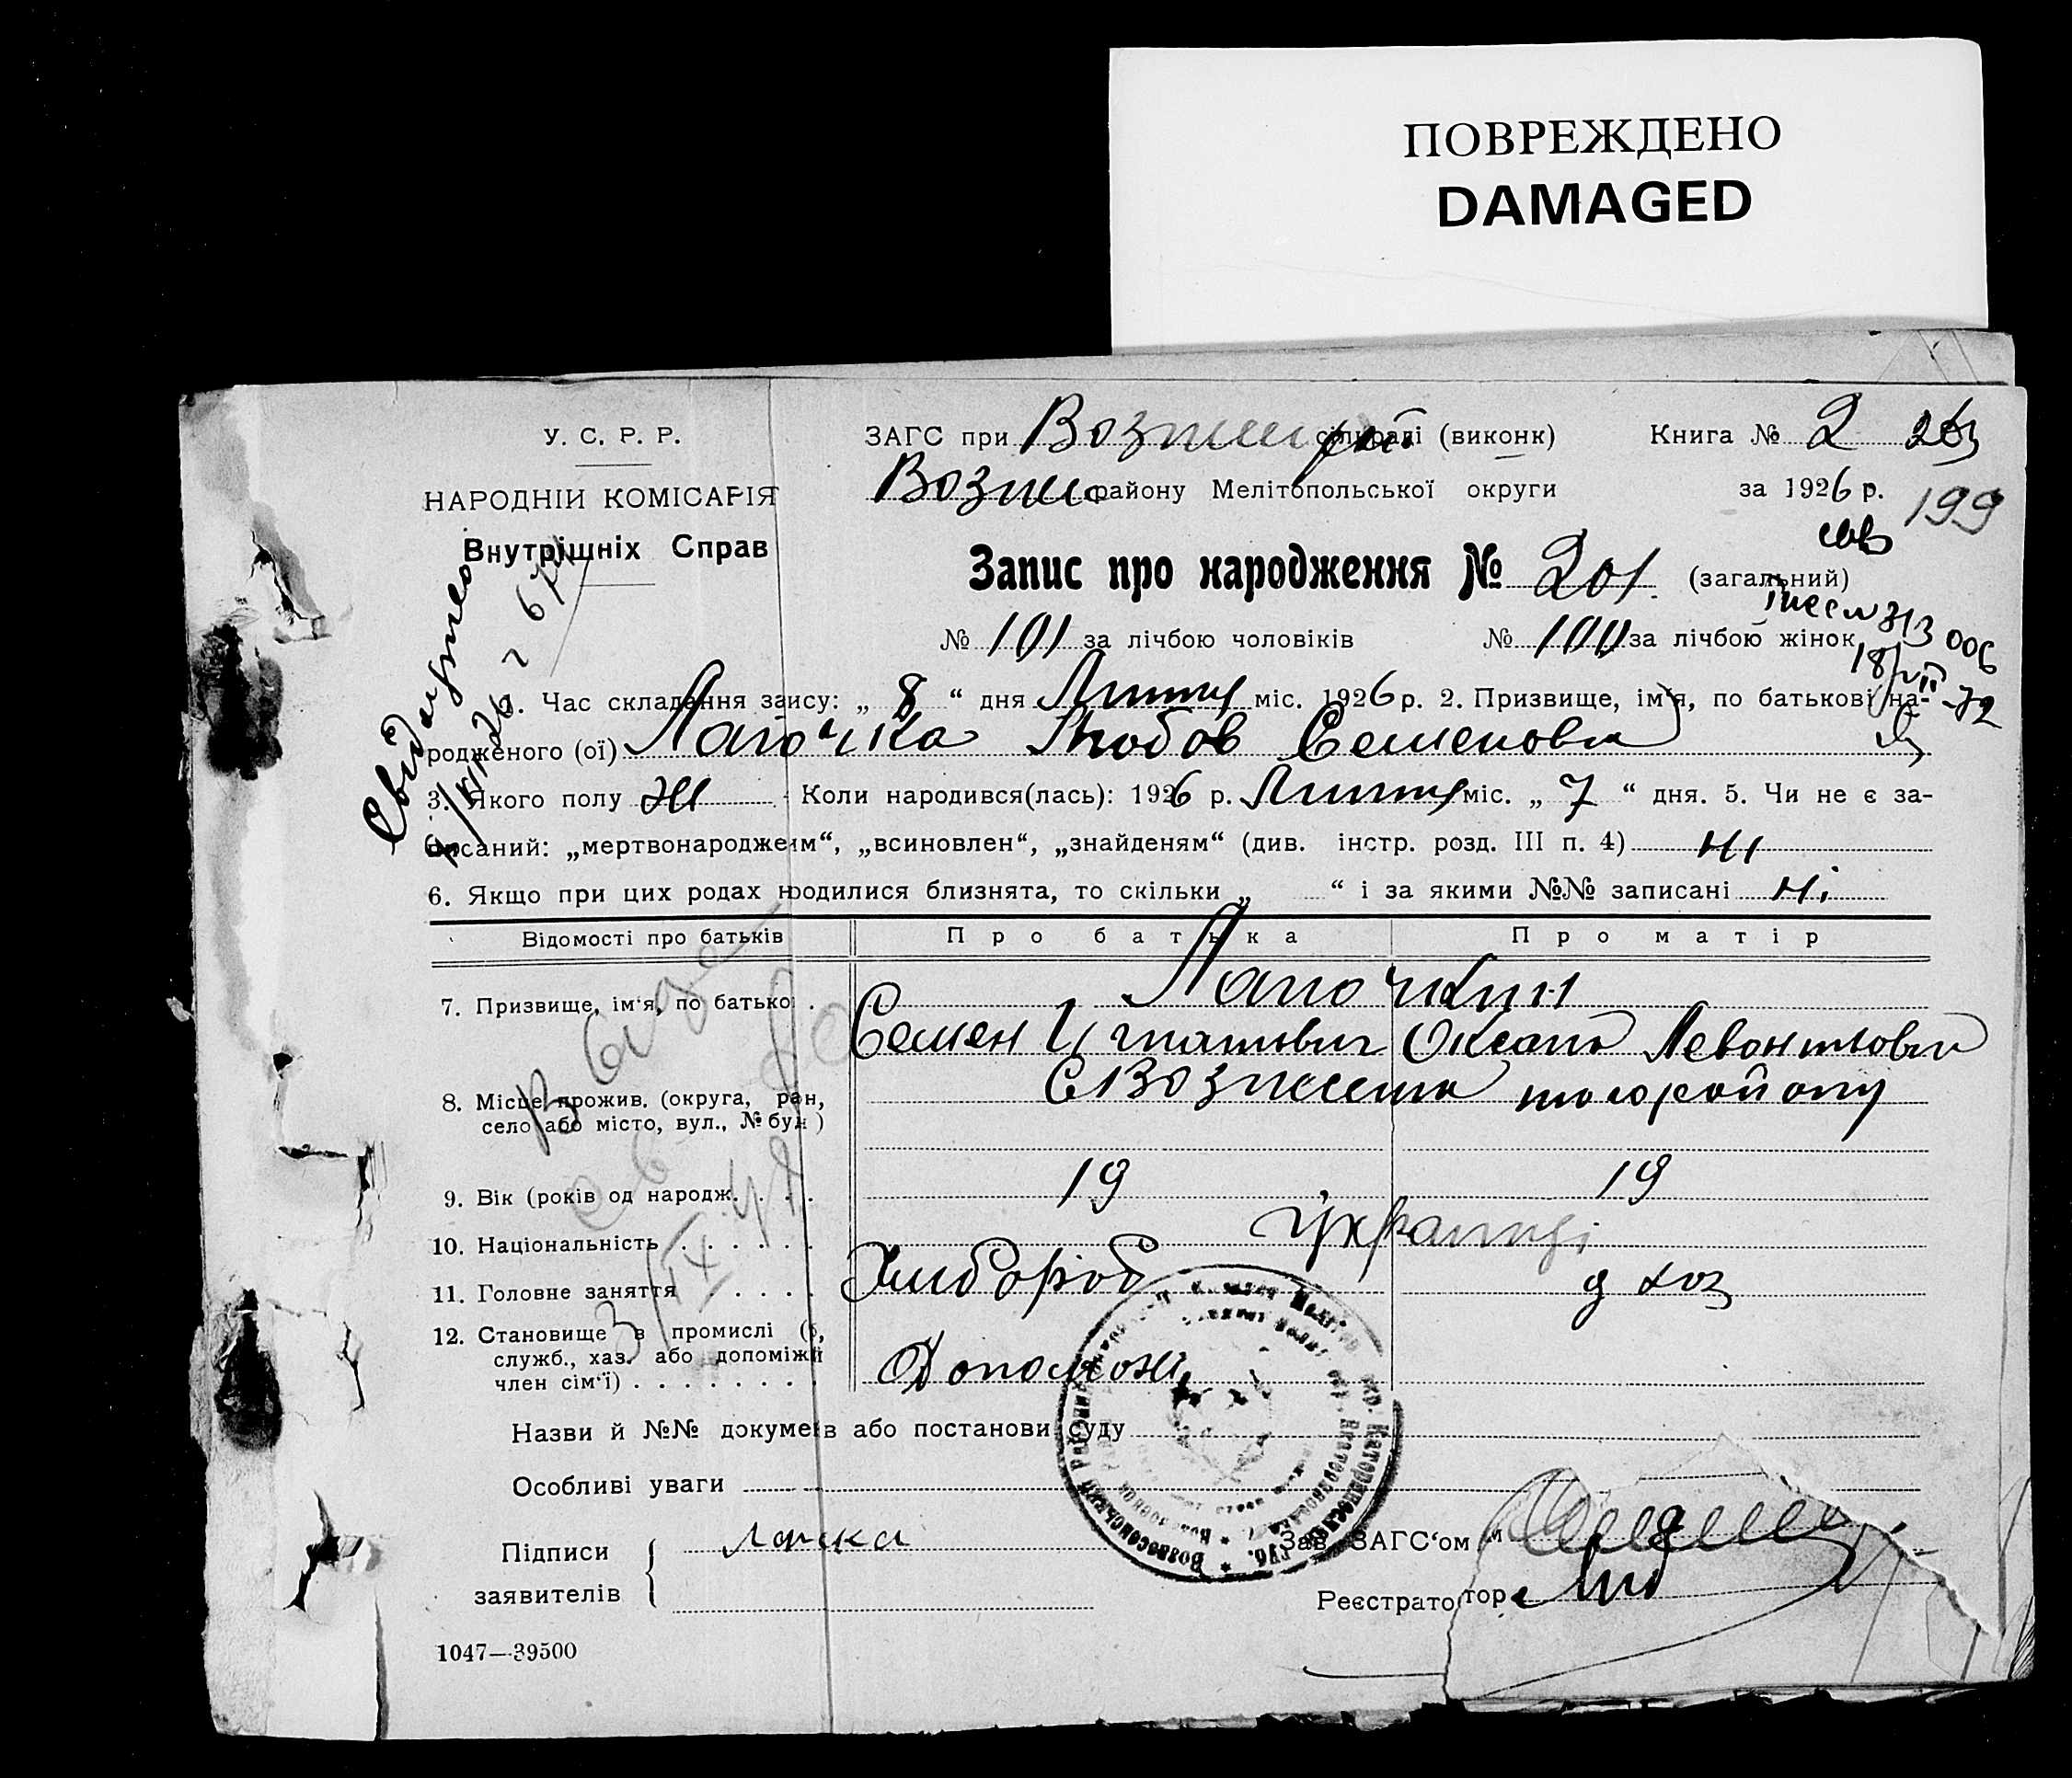 ПОВРЕЖДЕНО
DAMAGED
У. С. Р. Р.
НАРОДНІЙ КОМІСАРІЯ
Внутрішніх Справ
ЗАГС при (виконк) Книга № 2 263
Возне району Мелітопольської округи за 1926 р. 199
Запис про народження № 201. (загальний)
№ 101 за лічбою чоловіків № 100 за лічбою жінок
18/VII-72
1. Час складення запису: „ 8 “ дня Липня міс. 1926 р. 2. Призвище, ім'я, по батькові на-
родженого (ої) Лапочка Любов Семеновна
3. Якого полу ж Коли народився(лась): 1926 р. Липня міс. „ 7 “ дня. 5. Чи не є за-
писаний: „мертвонароджеим“, „всиновлен“, „знайденям“ (див. інстр. розд. III п. 4) ні
6. Якщо при цих родах родилися близнята, то скільки „ “ і за якими №№ записані ні
Відомості про батьків Про батька Про матір
7. Призвище, ім'я, по батько Лапочкин
Семен Игнатович Оксана Левонтьовна
8. Місце прожив. (округа, ран, с Вознесенка того району
село або місто, вул., № буд)
9. Вік (років од народж. 19 19
10. Національність Українці
11. Головне заняття Хлібороб д хоз
12. Становище в промислі (
служб., хаз. або допоміжн Допоможн
член сім'ї)
Назви й №№ докумеів або постанови суду
Особливі уваги
Підписи
заявителів
Зав. ЗАГС'ом
Реєстратор
1047—39500